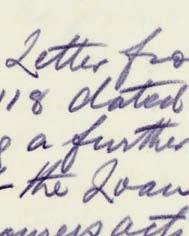 Letter fro
118 dated
g a further
the Loan